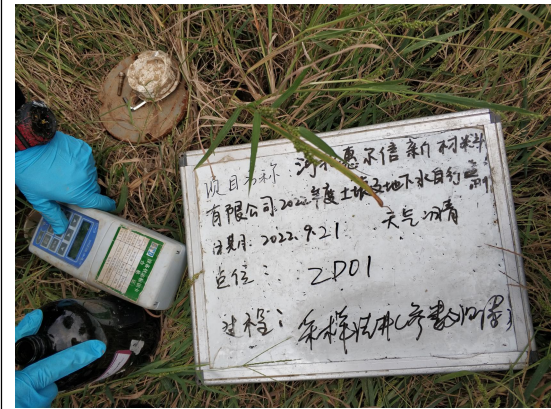 项目名称：河北惠尔信新材料
有限公司2022年度土壤及地下水自行监测
日期：2022.9.21 天气：晴
点位：2D01
过程：采样洗井（参数测量）